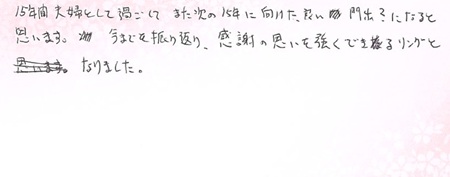 15年間夫婦として過ごして また次の15年に向けた良い門出?になると
思います。今までを振り返り、感謝の思いを強くできるリングと
なりました。